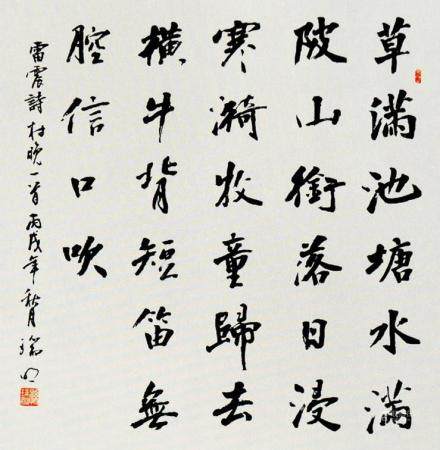 草滿池塘水滿
陂山銜落日浸
寒漪牧童歸去
橫牛背短笛無
腔信口吹
雷震詩村晚一首丙戌年秋月瑞明